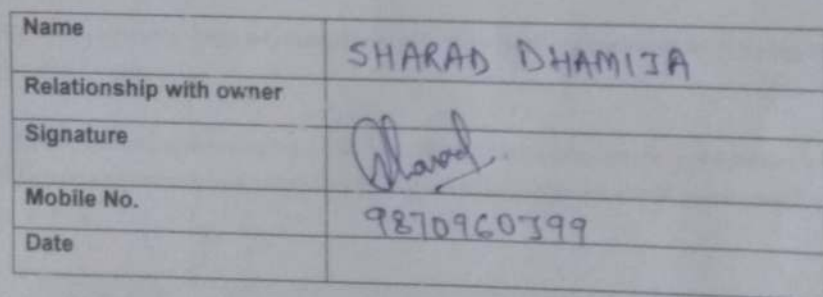 Name SHARAD DHAMIJA
Relationship with owner
Signature Sharad
Mobile No. 9870960399
Date